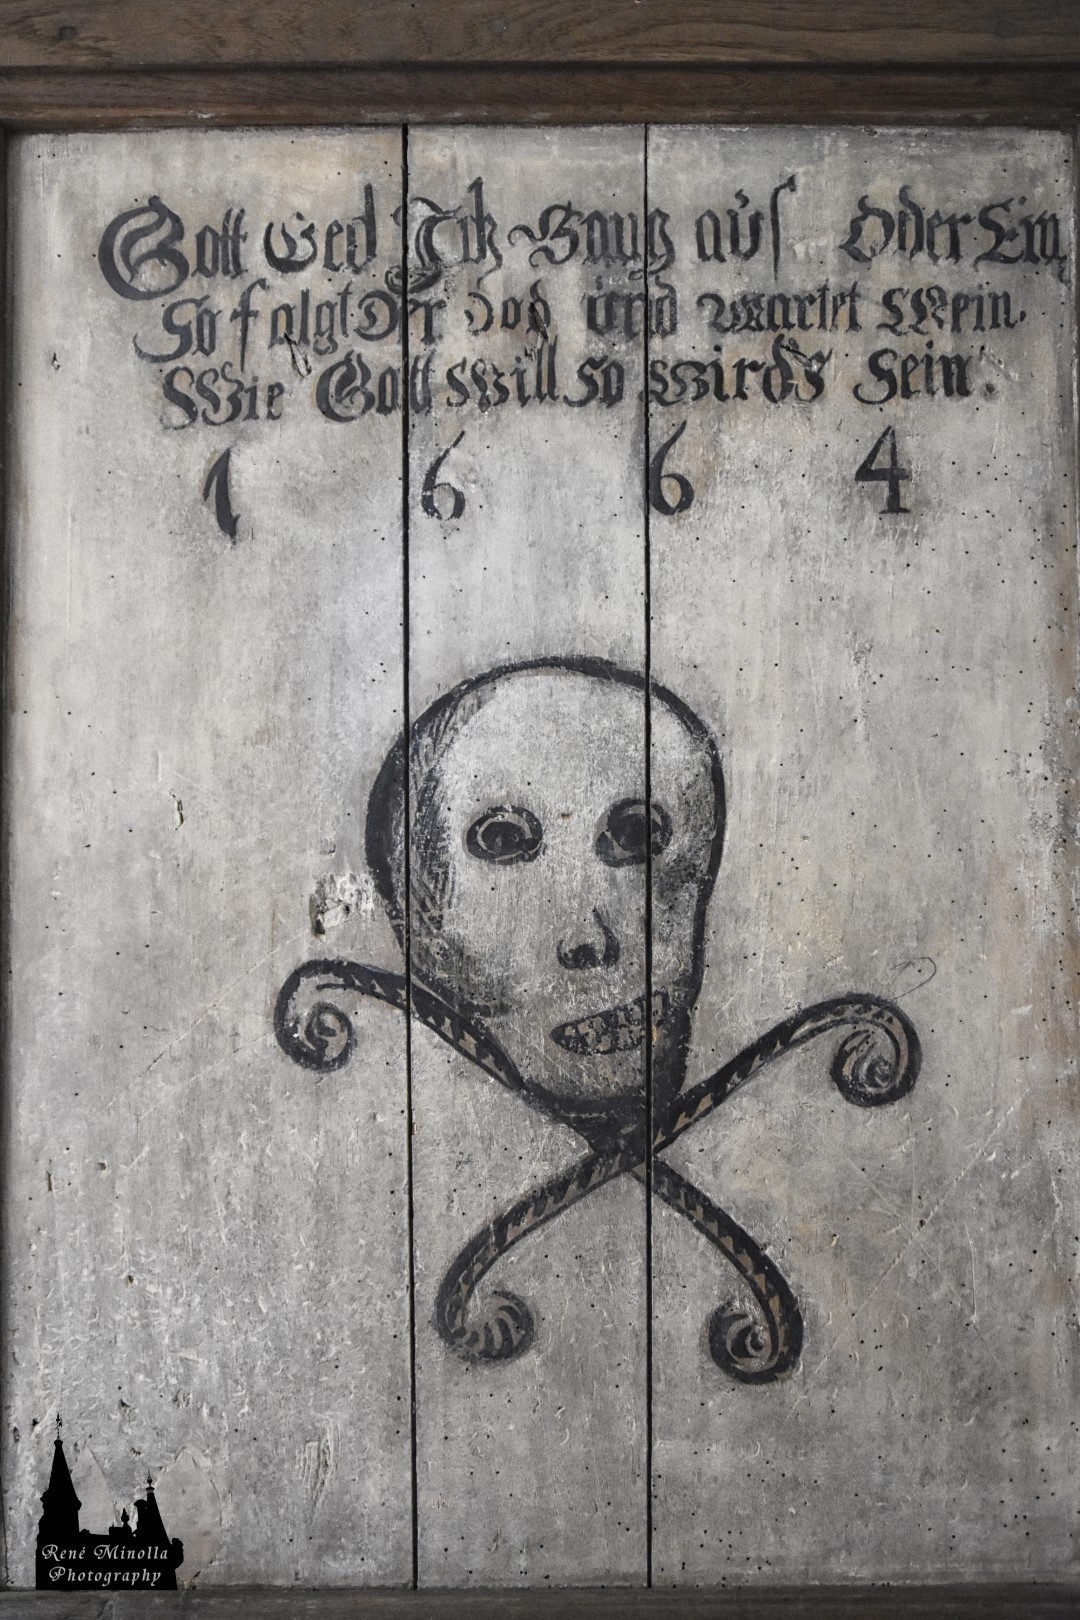 Gott Ged Ich Gaug aüs Oder Ein,
So folgt Der dod ünd wartet Mein.
Wie Gott Will so wirds Sein.
1 6 6 4
René Minolla
Photography